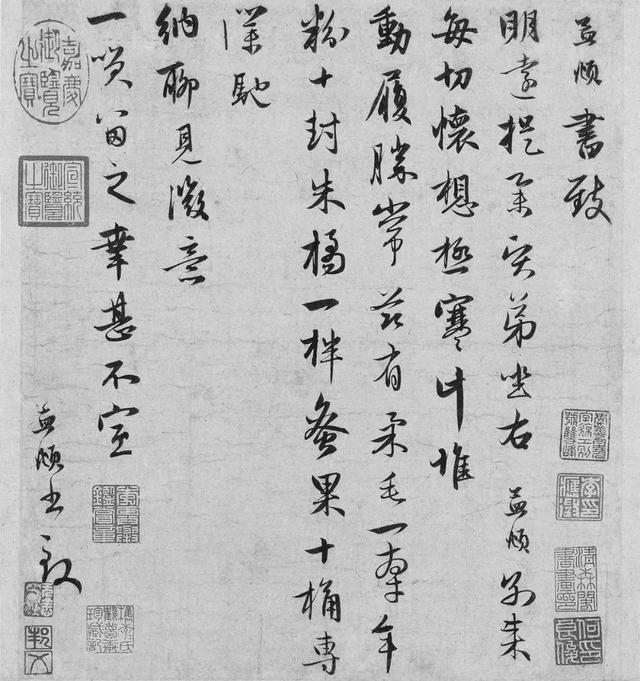 孟頫書致
明遠提舉賢弟坐右孟頫別來
每切懷想極寒計惟
動履勝常茲有柔毛一牽年
粉十封朱橘一柈蚤果十桶專
僕馳
納聊見微意
一笑留之幸甚不宣
孟頫書致
嘉慶御覽之寶
宣統御覽之寶
清森閣書畫印